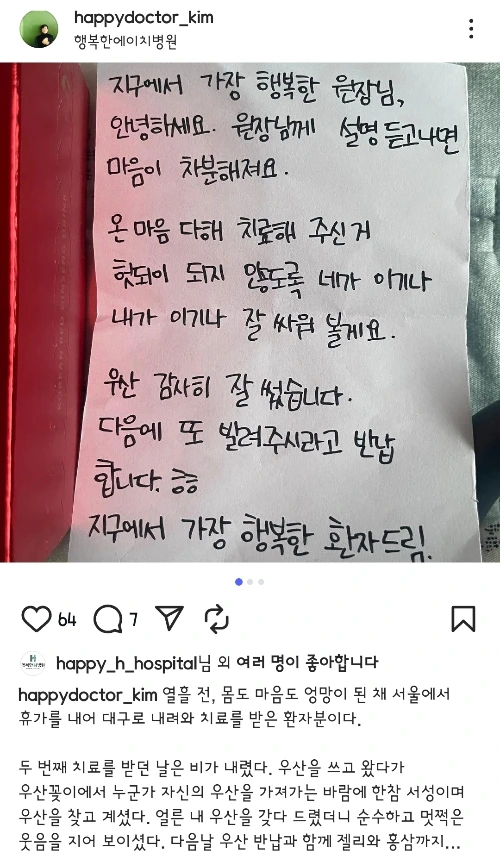 happydoctor_kim
행복한에이치병원
지구에서 가장 행복한 원장님,
안녕하세요. 원장님께 설명 듣고나면
마음이 차분해져요.
온 마음 다해 치료해 주신 거
헛되이 되지 않도록 네가 이기나
내가 이기나 잘 싸워 볼게요.
우산 감사히 잘 썼습니다.
다음에 또 빌려주시라고 반납
합니다. ㅎㅎ
지구에서 가장 행복한 환자드림.
64 7
happy_h_hospital님 외 여러 명이 좋아합니다
happydoctor_kim 열흘 전, 몸도 마음도 엉망이 된 채 서울에서
휴가를 내어 대구로 내려와 치료를 받은 환자분이다.
두 번째 치료를 받던 날은 비가 내렸다. 우산을 쓰고 왔다가
우산꽂이에서 누군가 자신의 우산을 가져가는 바람에 한참 서성이며
우산을 찾고 계셨다. 얼른 내 우산을 갖다 드렸더니 순수하고 멋쩍은
웃음을 지어 보이셨다. 다음날 우산 반납과 함께 젤리와 홍삼까지...